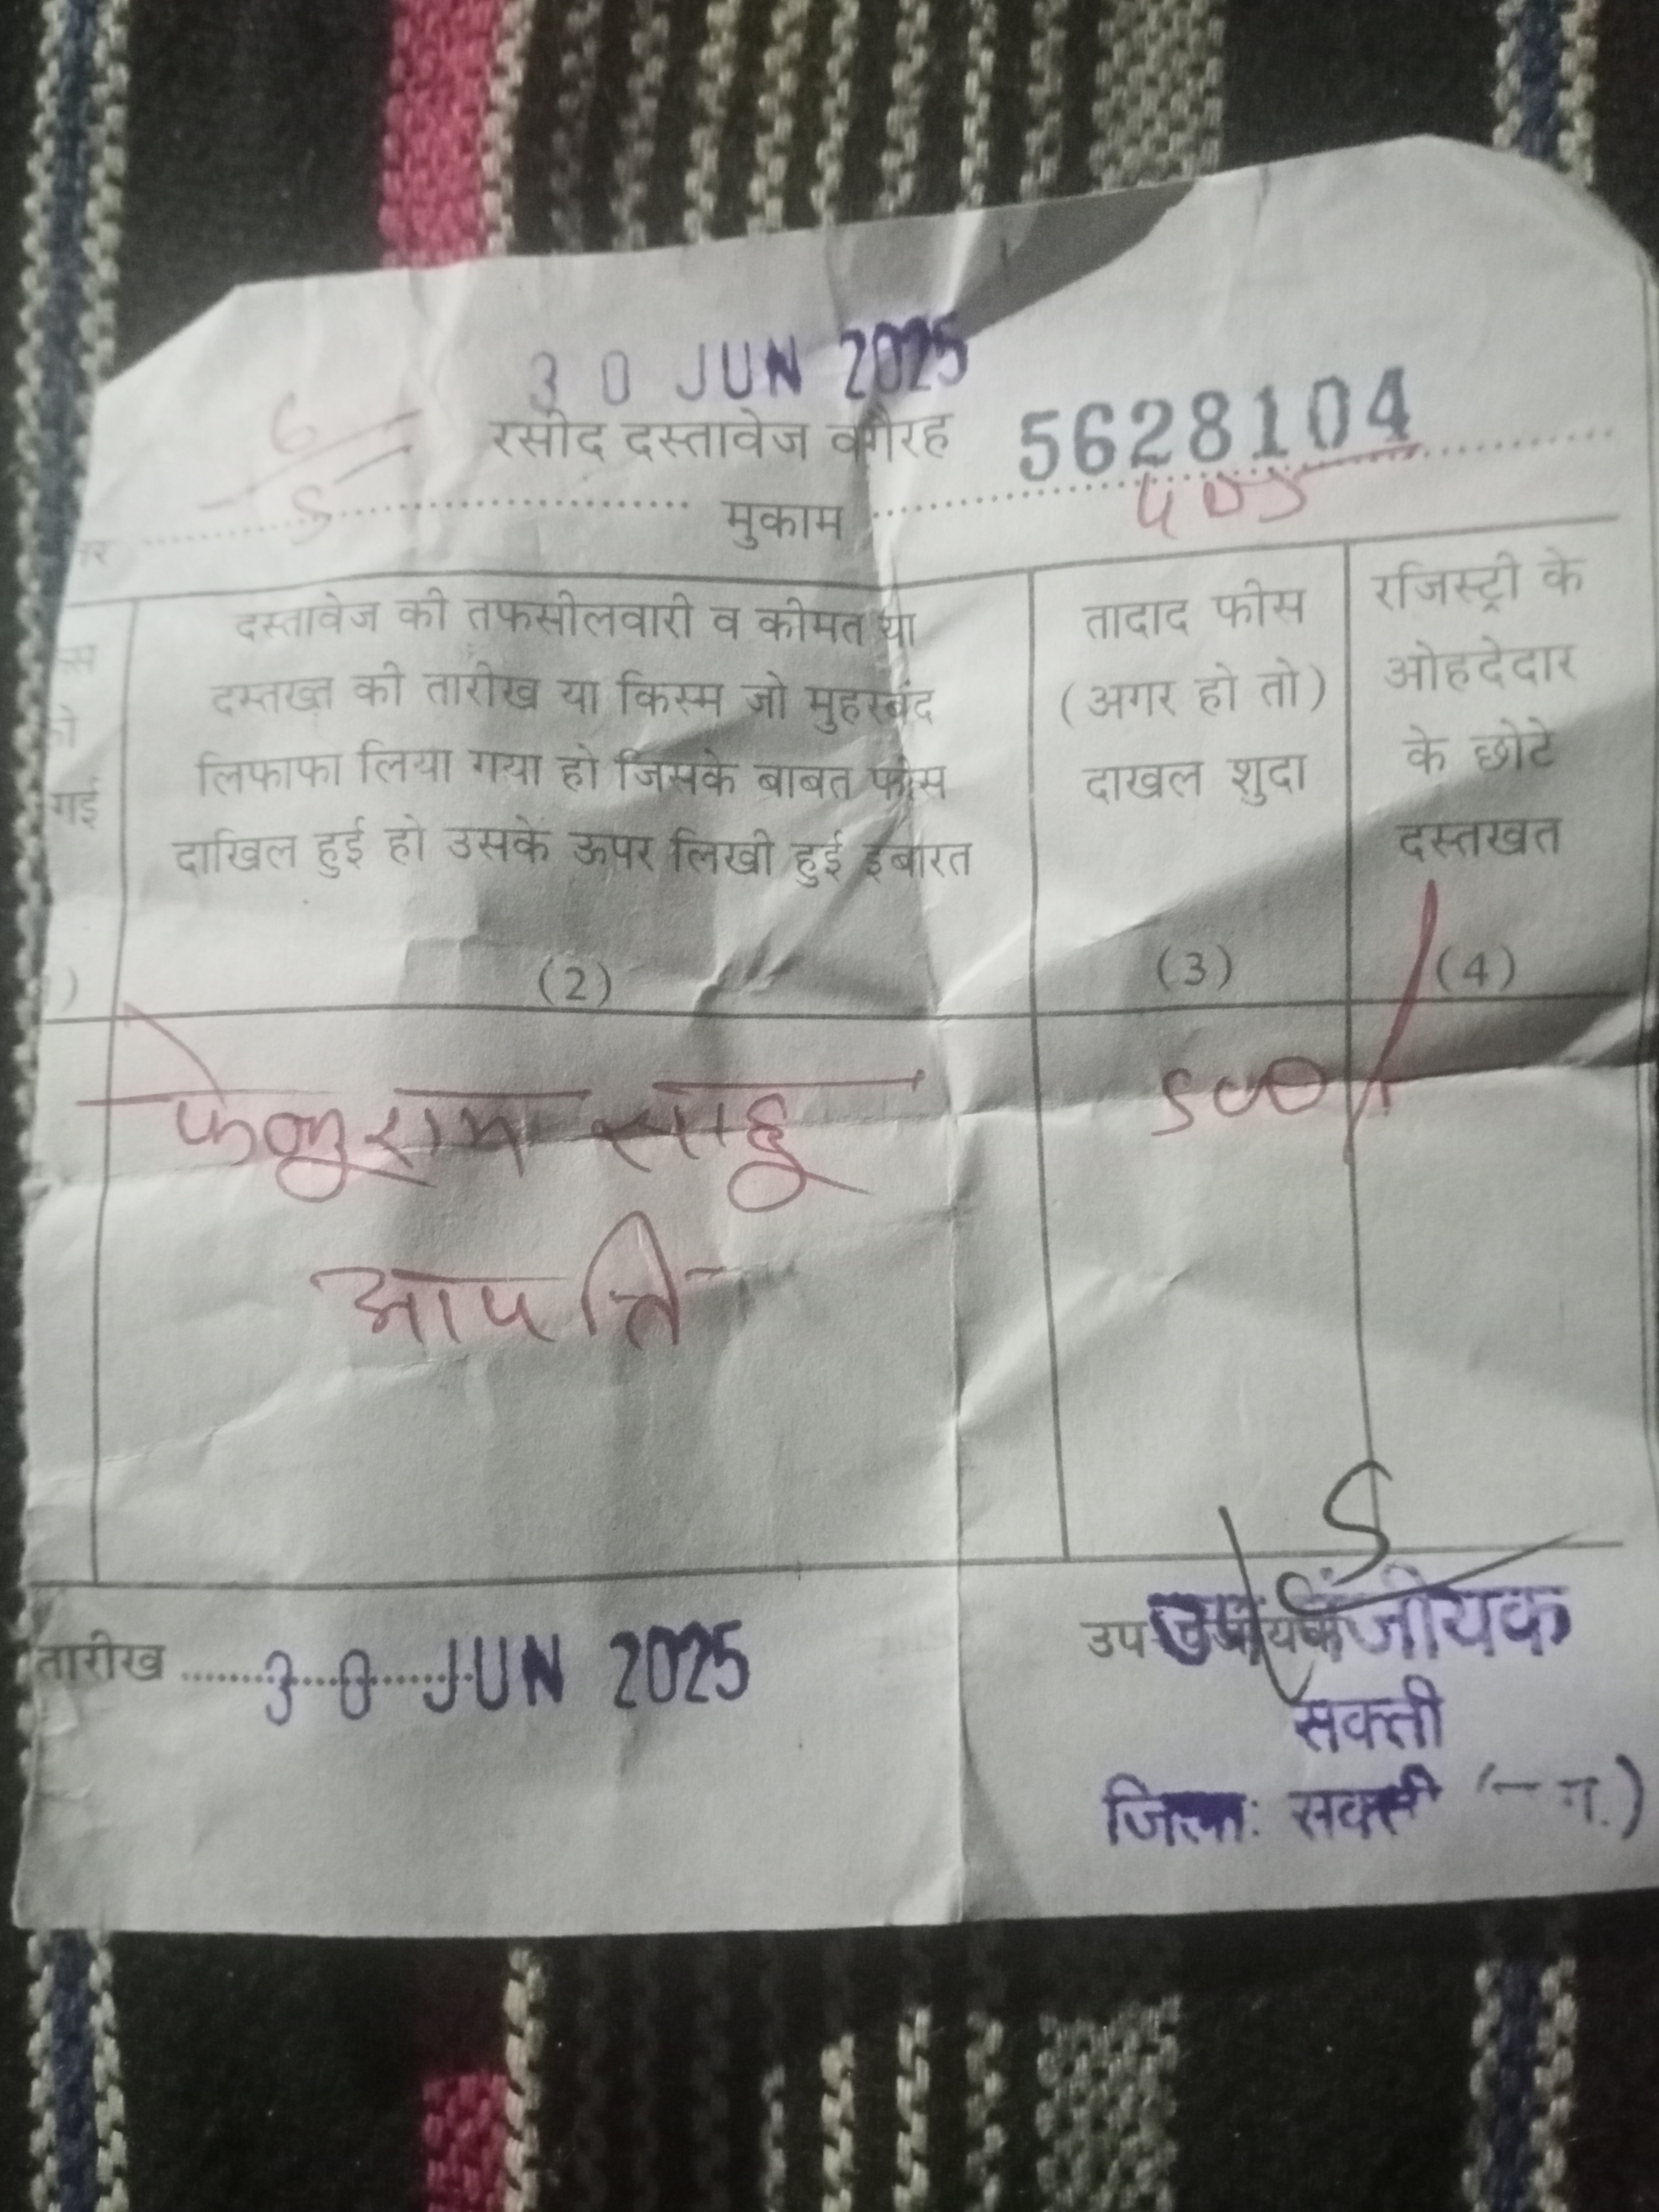 30 JUN 2025
रसीद दस्तावेज वगैरह 5628104
6
5
मुकाम
दस्तावेज की तफसीलवारी व कीमत या
दस्तख्त की तारीख या किस्म जो मुहरबंद
लिफाफा लिया गया हो जिसके बाबत फीस
दाखिल हुई हो उसके ऊपर लिखी हुई इबारत
(2)
तादाद फीस
(अगर हो तो)
दाखल शुदा
(3)
रजिस्ट्री के
ओहदेदार
के छोटे
दस्तखत
(4)
गई
)
साहू
500/
आपत्ति
तारीख 30 JUN 2025
उप पंजीयक
सक्ती
जिला: सक्ती